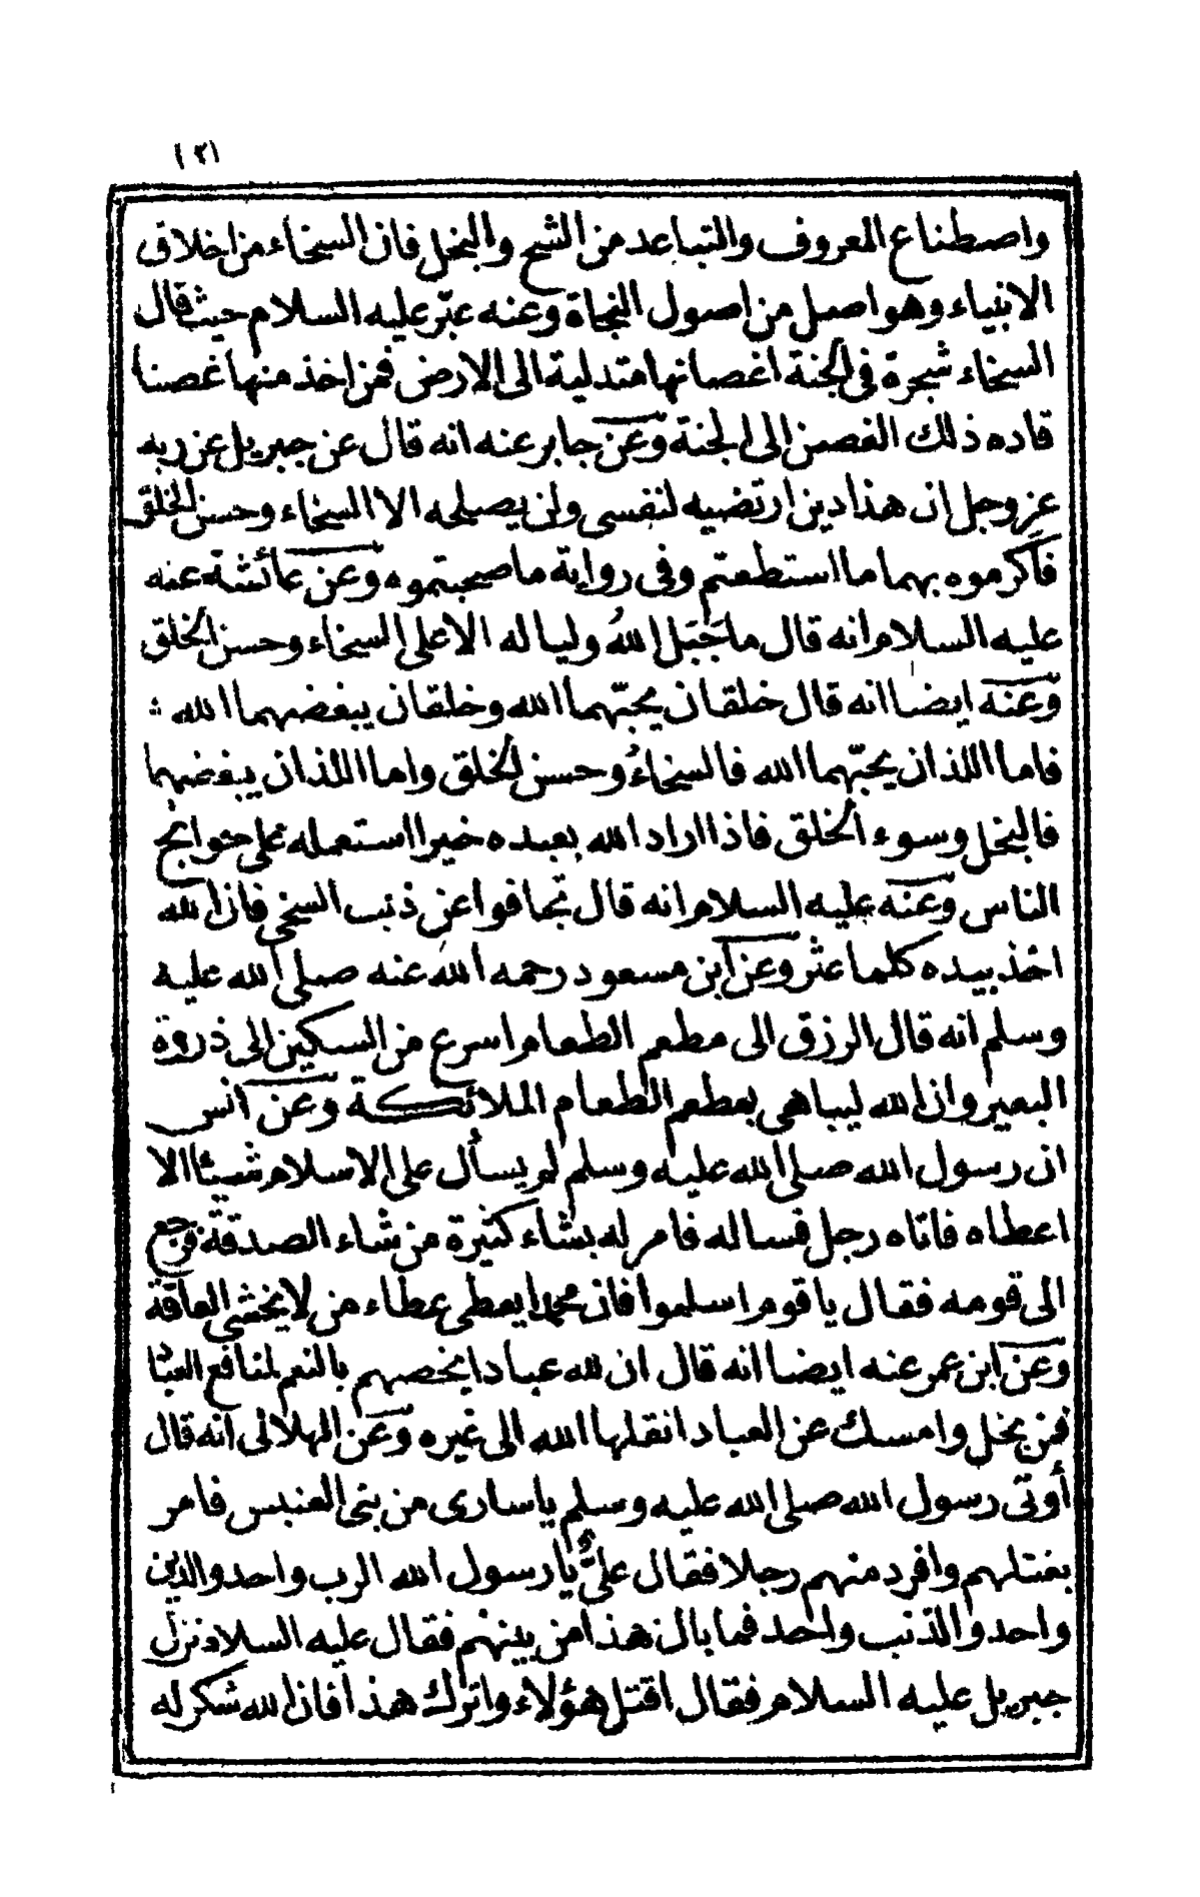 (٢١
واصطناع المعروف والتباعد من الشح والبخل فان السخاء من اخلاق
الانبياء وهو اصل من اصول النجاة وعنه عبّر عليه السلام حيث قال
السخاء شجرة فى الجنة اغصانها متدلية الى الارض فمن اخذ منها غصنا
قاده ذلك الغصن الى الجنة وعن جابر عنه انه قال عن جبريل عن ربه
عز وجل ان هذا دين ارتضيه لنفسى ولن يصلحه الا السخاء وحسن الخلق
فأكرموه بهما ما استطعتم وفى رواية ما صحبتموه وعن عائشة عنه
عليه السلام انه قال ما جَبَل اللهُ وليا له الا على السخاء وحسن الخلق
وعنه ايضا انه قال خلقان يحبّهما الله وخلقان يبغضهما الله :
فاما اللذان يحبّهما الله فالسخاءُ وحسن الخلق واما اللذان يبغضهما
فالبخل وسوء الخلق فاذا اراد الله بعبده خيرا استعمله على حوايج
الناس وعنه عليه السلام انه قال تجافوا عن ذنب السخى فان الله
اخذ بيده كلما عثر وعن ابن مسعود رحمه الله عنه صلى الله عليه
وسلم انه قال الرزق الى مطعم الطعام اسرع من السكين الى ذروة
البعير وان الله ليباهى بمطعم الطعام الملائكة وعن انس
ان رسول الله صلى الله عليه وسلم لم يسأل على الاسلام شيئا الا
اعطاه فاتاه رجل فساله فامر له بشاء كثيرة من شاء الصدقة فرجع
الى قومه فقال يا قوم اسلموا فان محمدا يعطى عطاء من لا يخشى الفاقة
وعن ابن عمر عنه ايضا انه قال ان لله عبادا يخصهم بالنعم لمنافع العباد
فمن بخل وامسك عن العباد انقلها الله الى غيره وعن الهلالى انه قال
أوتى رسول الله صلى الله عليه وسلم ياسارى من بنى العنبس فامر
بقتلهم وافرد منهم رجلا فقال علىٌّ يا رسول الله الرب واحد والدين
واحد والذنب واحد فما بال هذا من بينهم فقال عليه السلام نزل
جبريل عليه السلام فقال اقتل هؤلاء واترك هذا فان الله شكر له